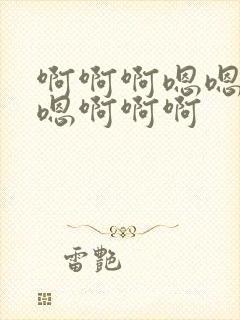 啊啊啊嗯嗯
嗯啊啊啊
雷艷